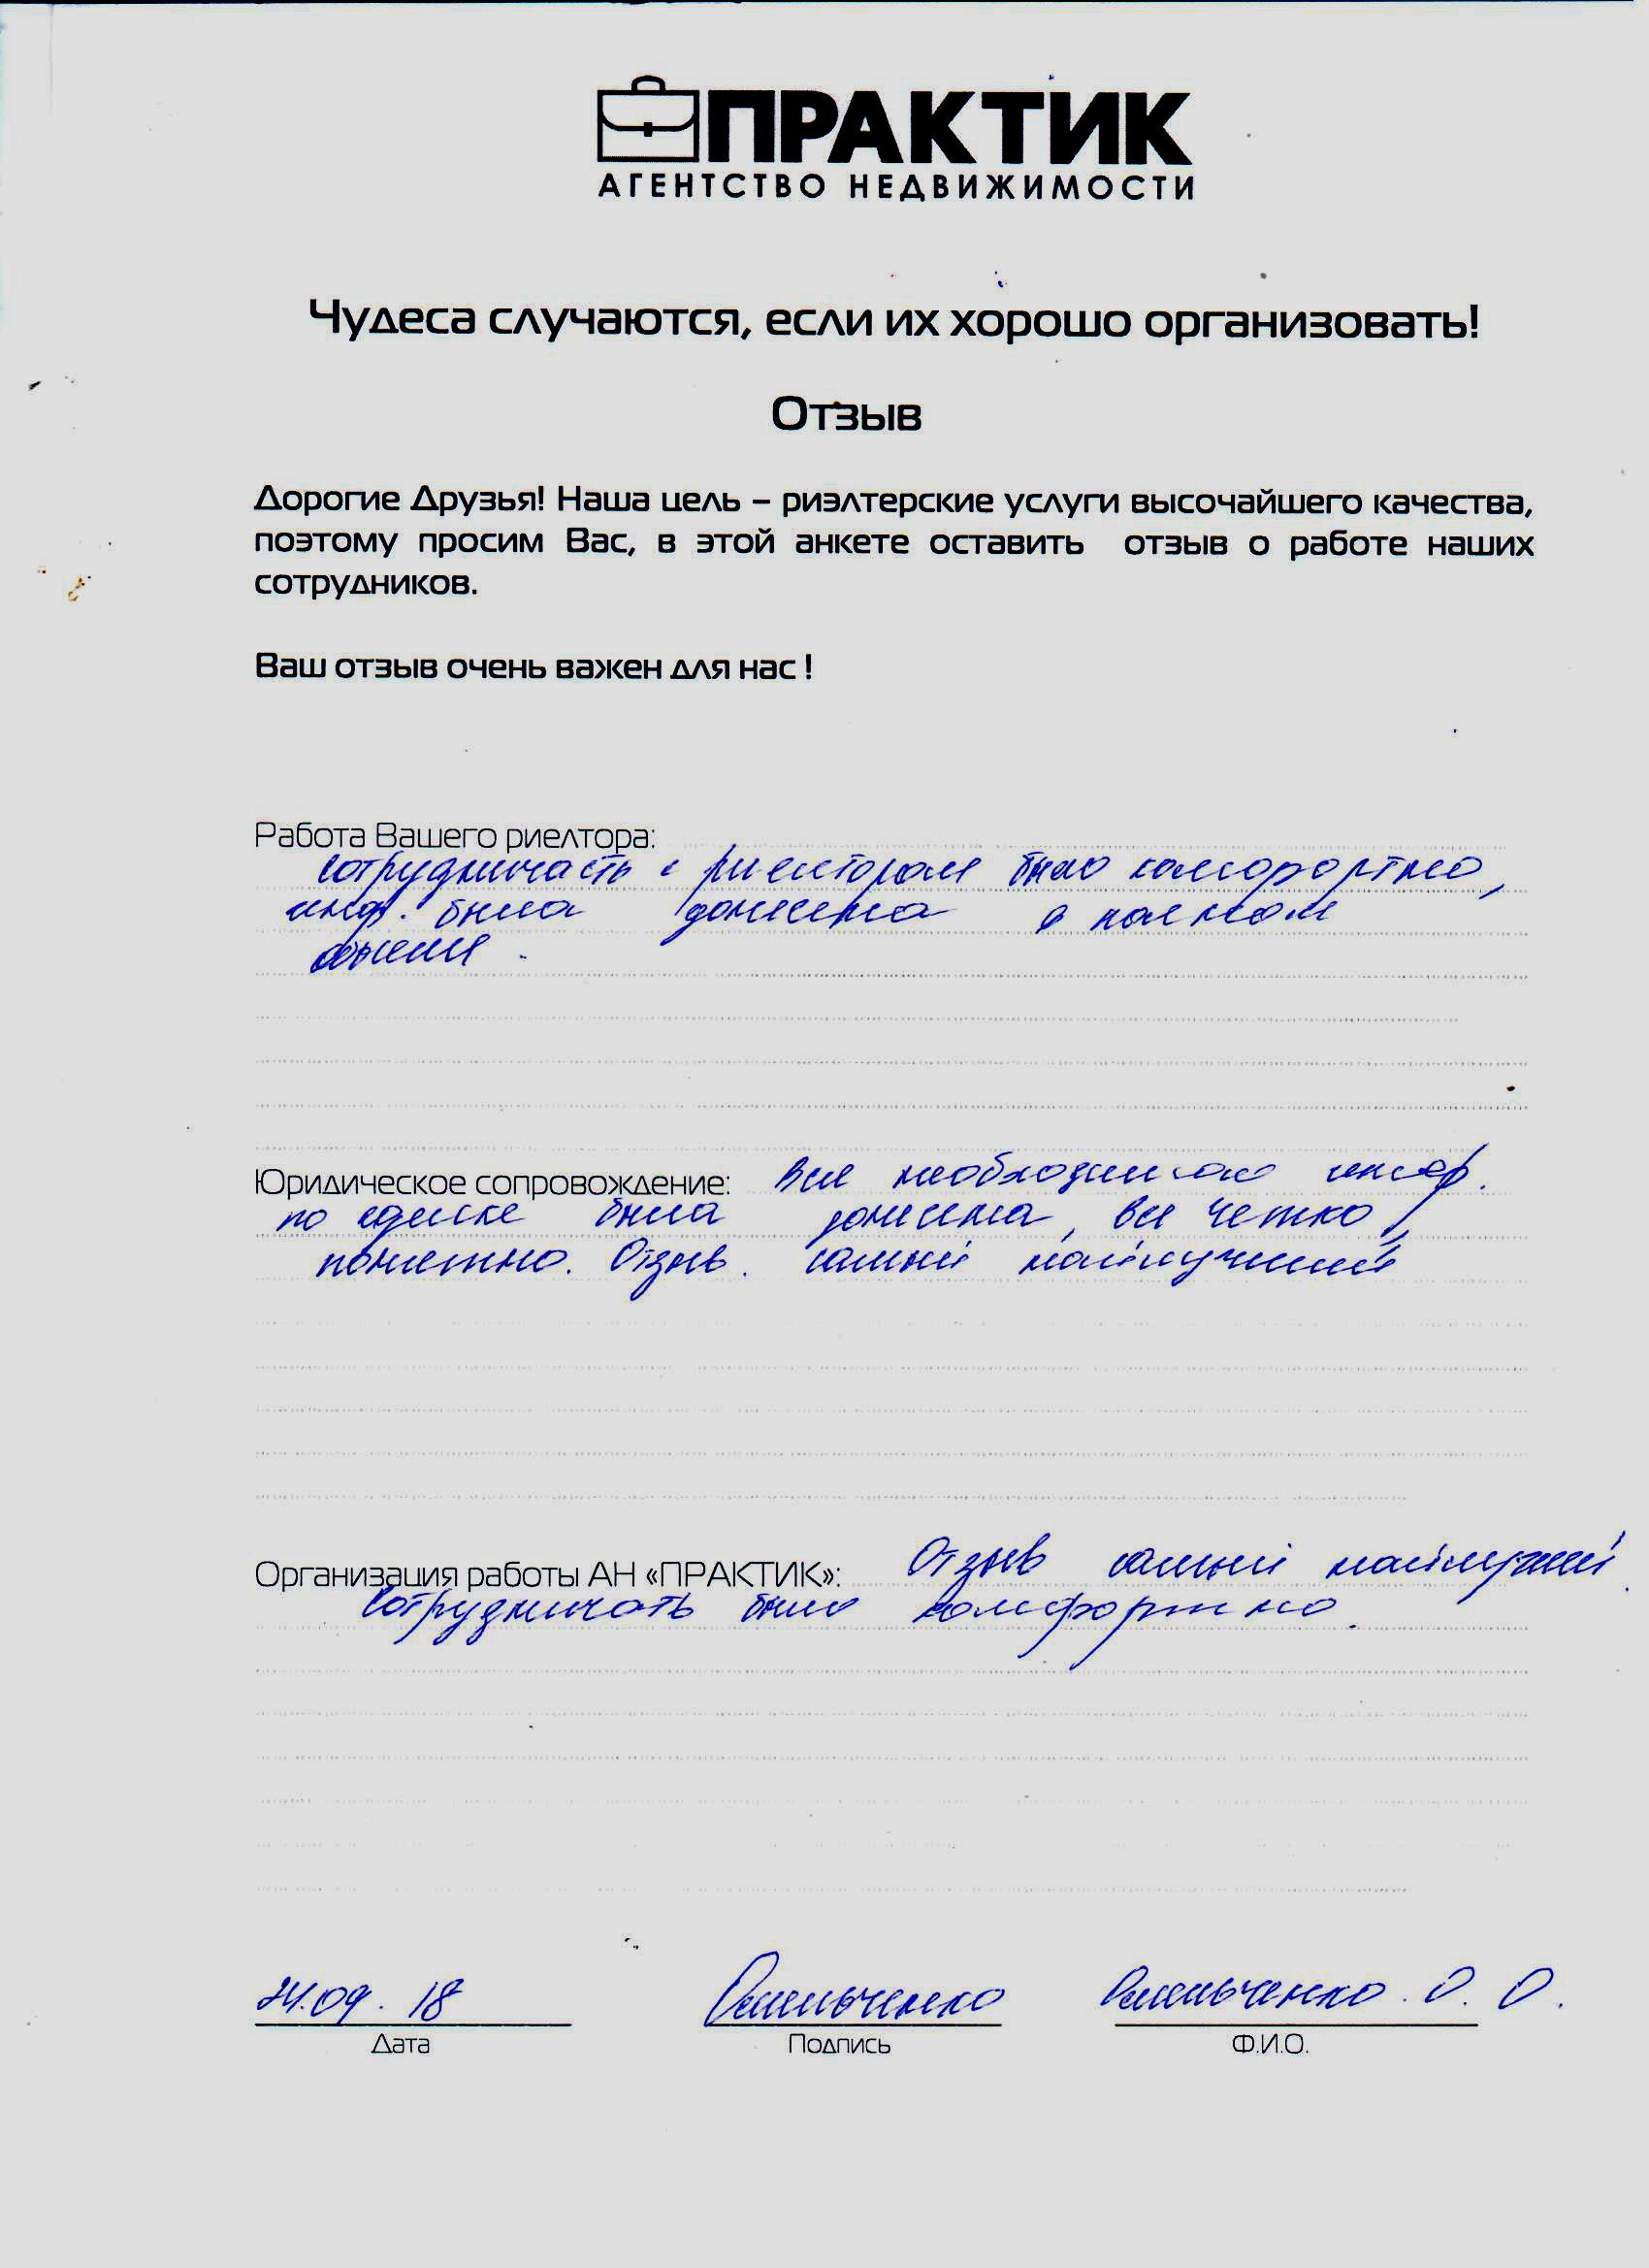 ПРАКТИК
АГЕНТСТВО НЕДВИЖИМОСТИ
Чудеса случаются, если их хорошо организовать!
Отзыв
Дорогие Друзья! Наша цель – риэлтерские услуги высочайшего качества,
поэтому просим Вас, в этой анкете оставить отзыв о работе наших
сотрудников.
Ваш отзыв очень важен для нас !
Работа Вашего риелтора:
сотрудничать с риелтором было комфортно,
инф. была донесена в полном
объеме .
Юридическое сопровождение: Вся необходимая инф.
по сделке была донесена, все четко,
понятно. Отзыв. самый наилучший
Организация работы АН «ПРАКТИК»: Отзыв самый наилучший.
Сотрудничать было комфортно.
24.09.18 Омельченко Омельченко. О. О.
Дата Подпись Ф.И.О.